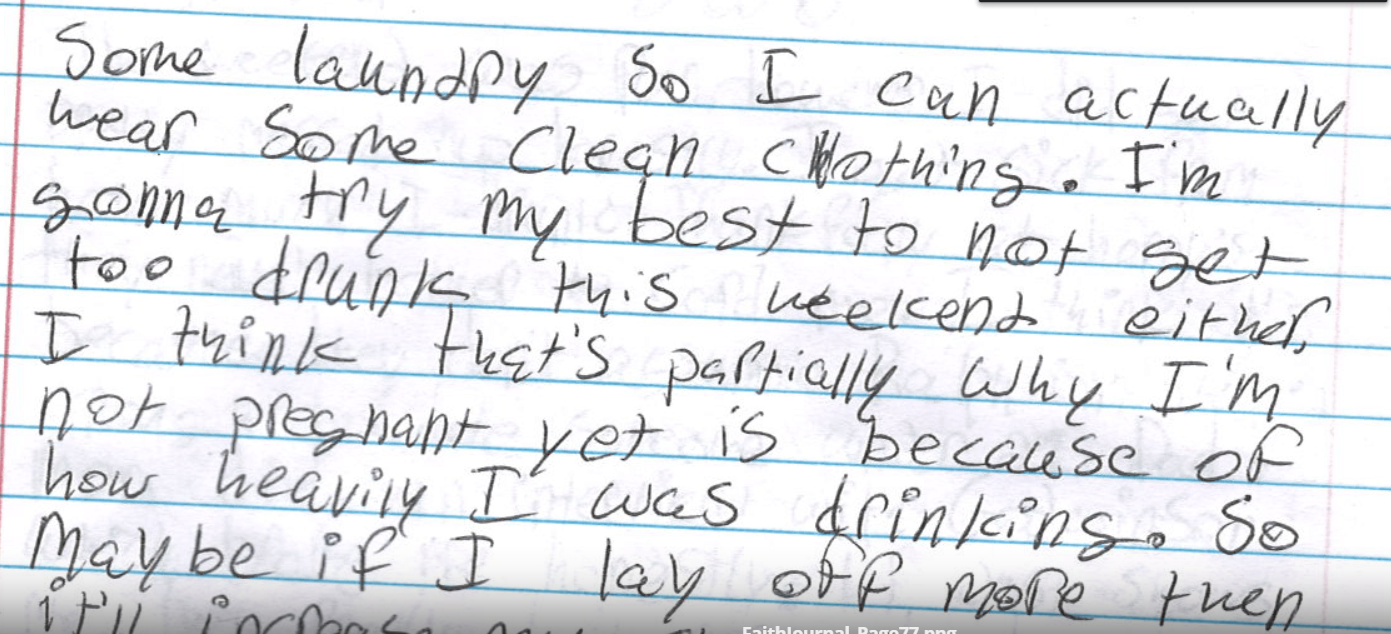 Some laundry So I can actually
wear Some Clean Clothing. I'm
gonna try my best to not get
too drunk this weekend either,
I think that's partially why I'm
not pregnant yet is because of
how heavily I was drinking. So
Maybe if I lay off more then
it'll increase
FaithJournal_Page77.png